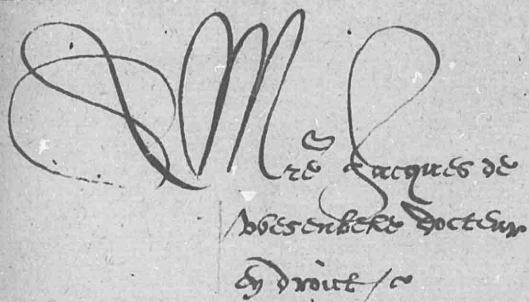 Mre Jacques de
Wesenbeke docteur
en droict /c